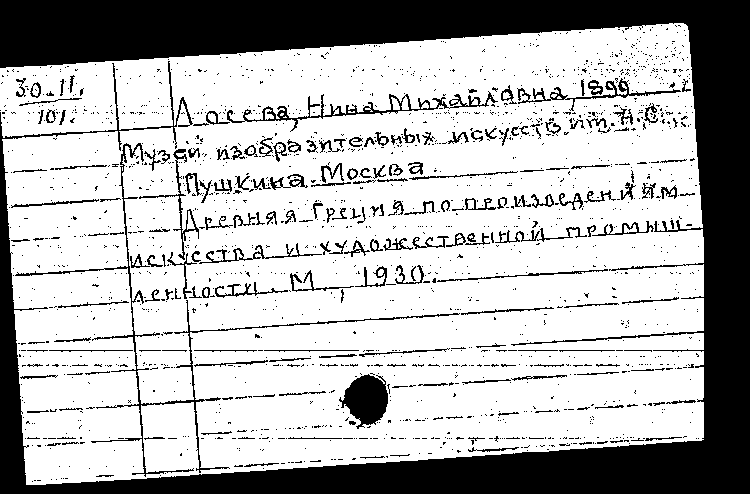 30-II.
101.
Лосева, Нина Михайловна, 1899
Музей изобразительных искусств им. А.С.
Пушкина. Москва.
Древняя Греция по произведениям
искусства и художественной промыш-
ленности. М., 1930.